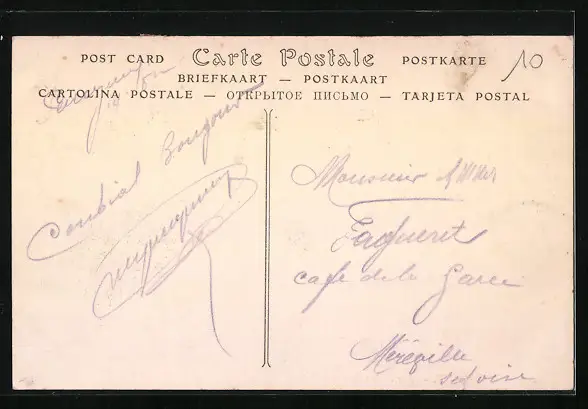 POST CARD Carte Postale POSTKARTE
BRIEFKAART — POSTKAART
CARTOLINA POSTALE — ОТКРЫТОЕ ПИСЬМО — TARJETA POSTAL
10
Cordial Bonjour
Monsieur
Fagueret
café de la Gare
Méréville
S et Oise